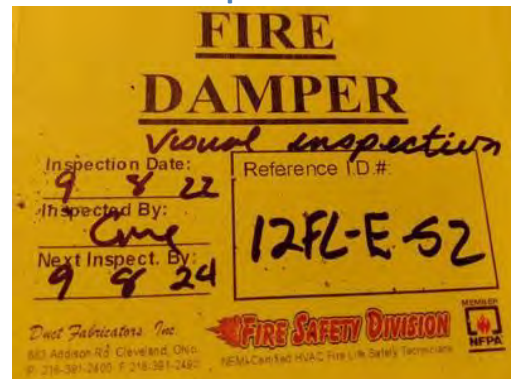 FIRE
DAMPER
Visual inspection
Inspection Date:
9 8 22
Inspected By:
Next Inspect. By:
9 8 24
Reference I.D.#:
12FL-E-52
Duct Fabricators, Inc.
883 Addison Rd. Cleveland, Ohio
P. 216-391-2400 F. 216-391-2480
FIRE SAFETY DIVISION
NEMI-Certified HVAC Fire Life Safety Technicians
MEMBER
NFPA